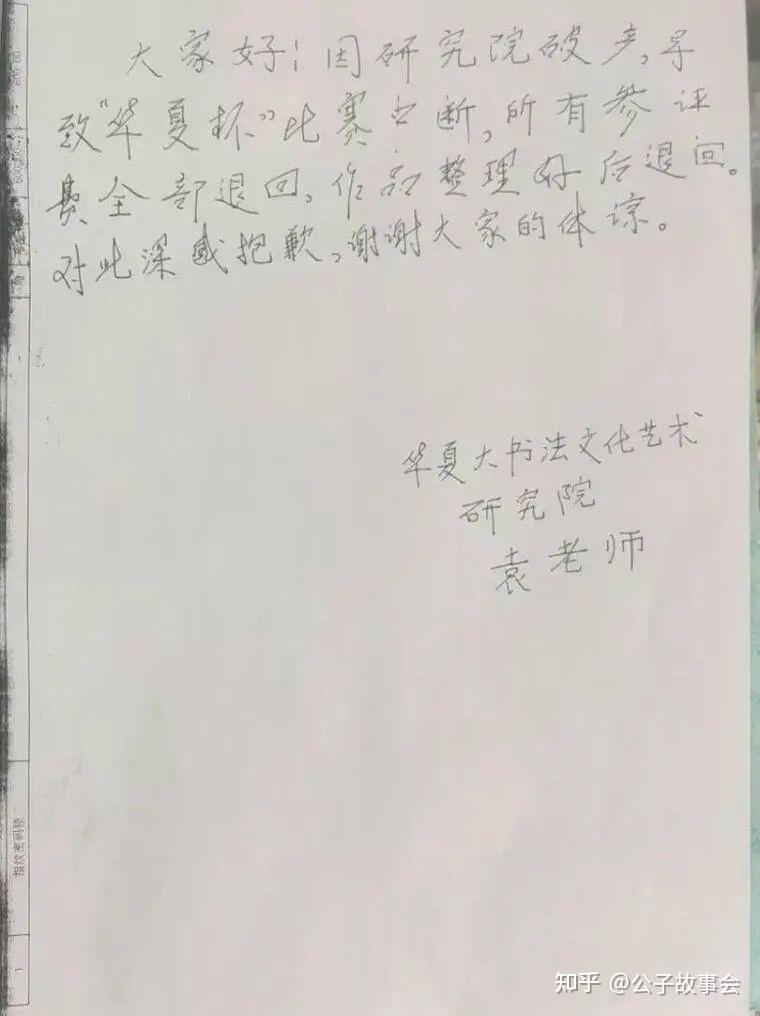 大家好！因研究院破产，导
致“华夏杯”比赛中断，所有参评
费全部退回，作品整理好后退回。
对此深感抱歉，谢谢大家的体谅。
华夏大书法文化艺术
研究院
袁老师
指纹密码锁
知乎 @公子故事会